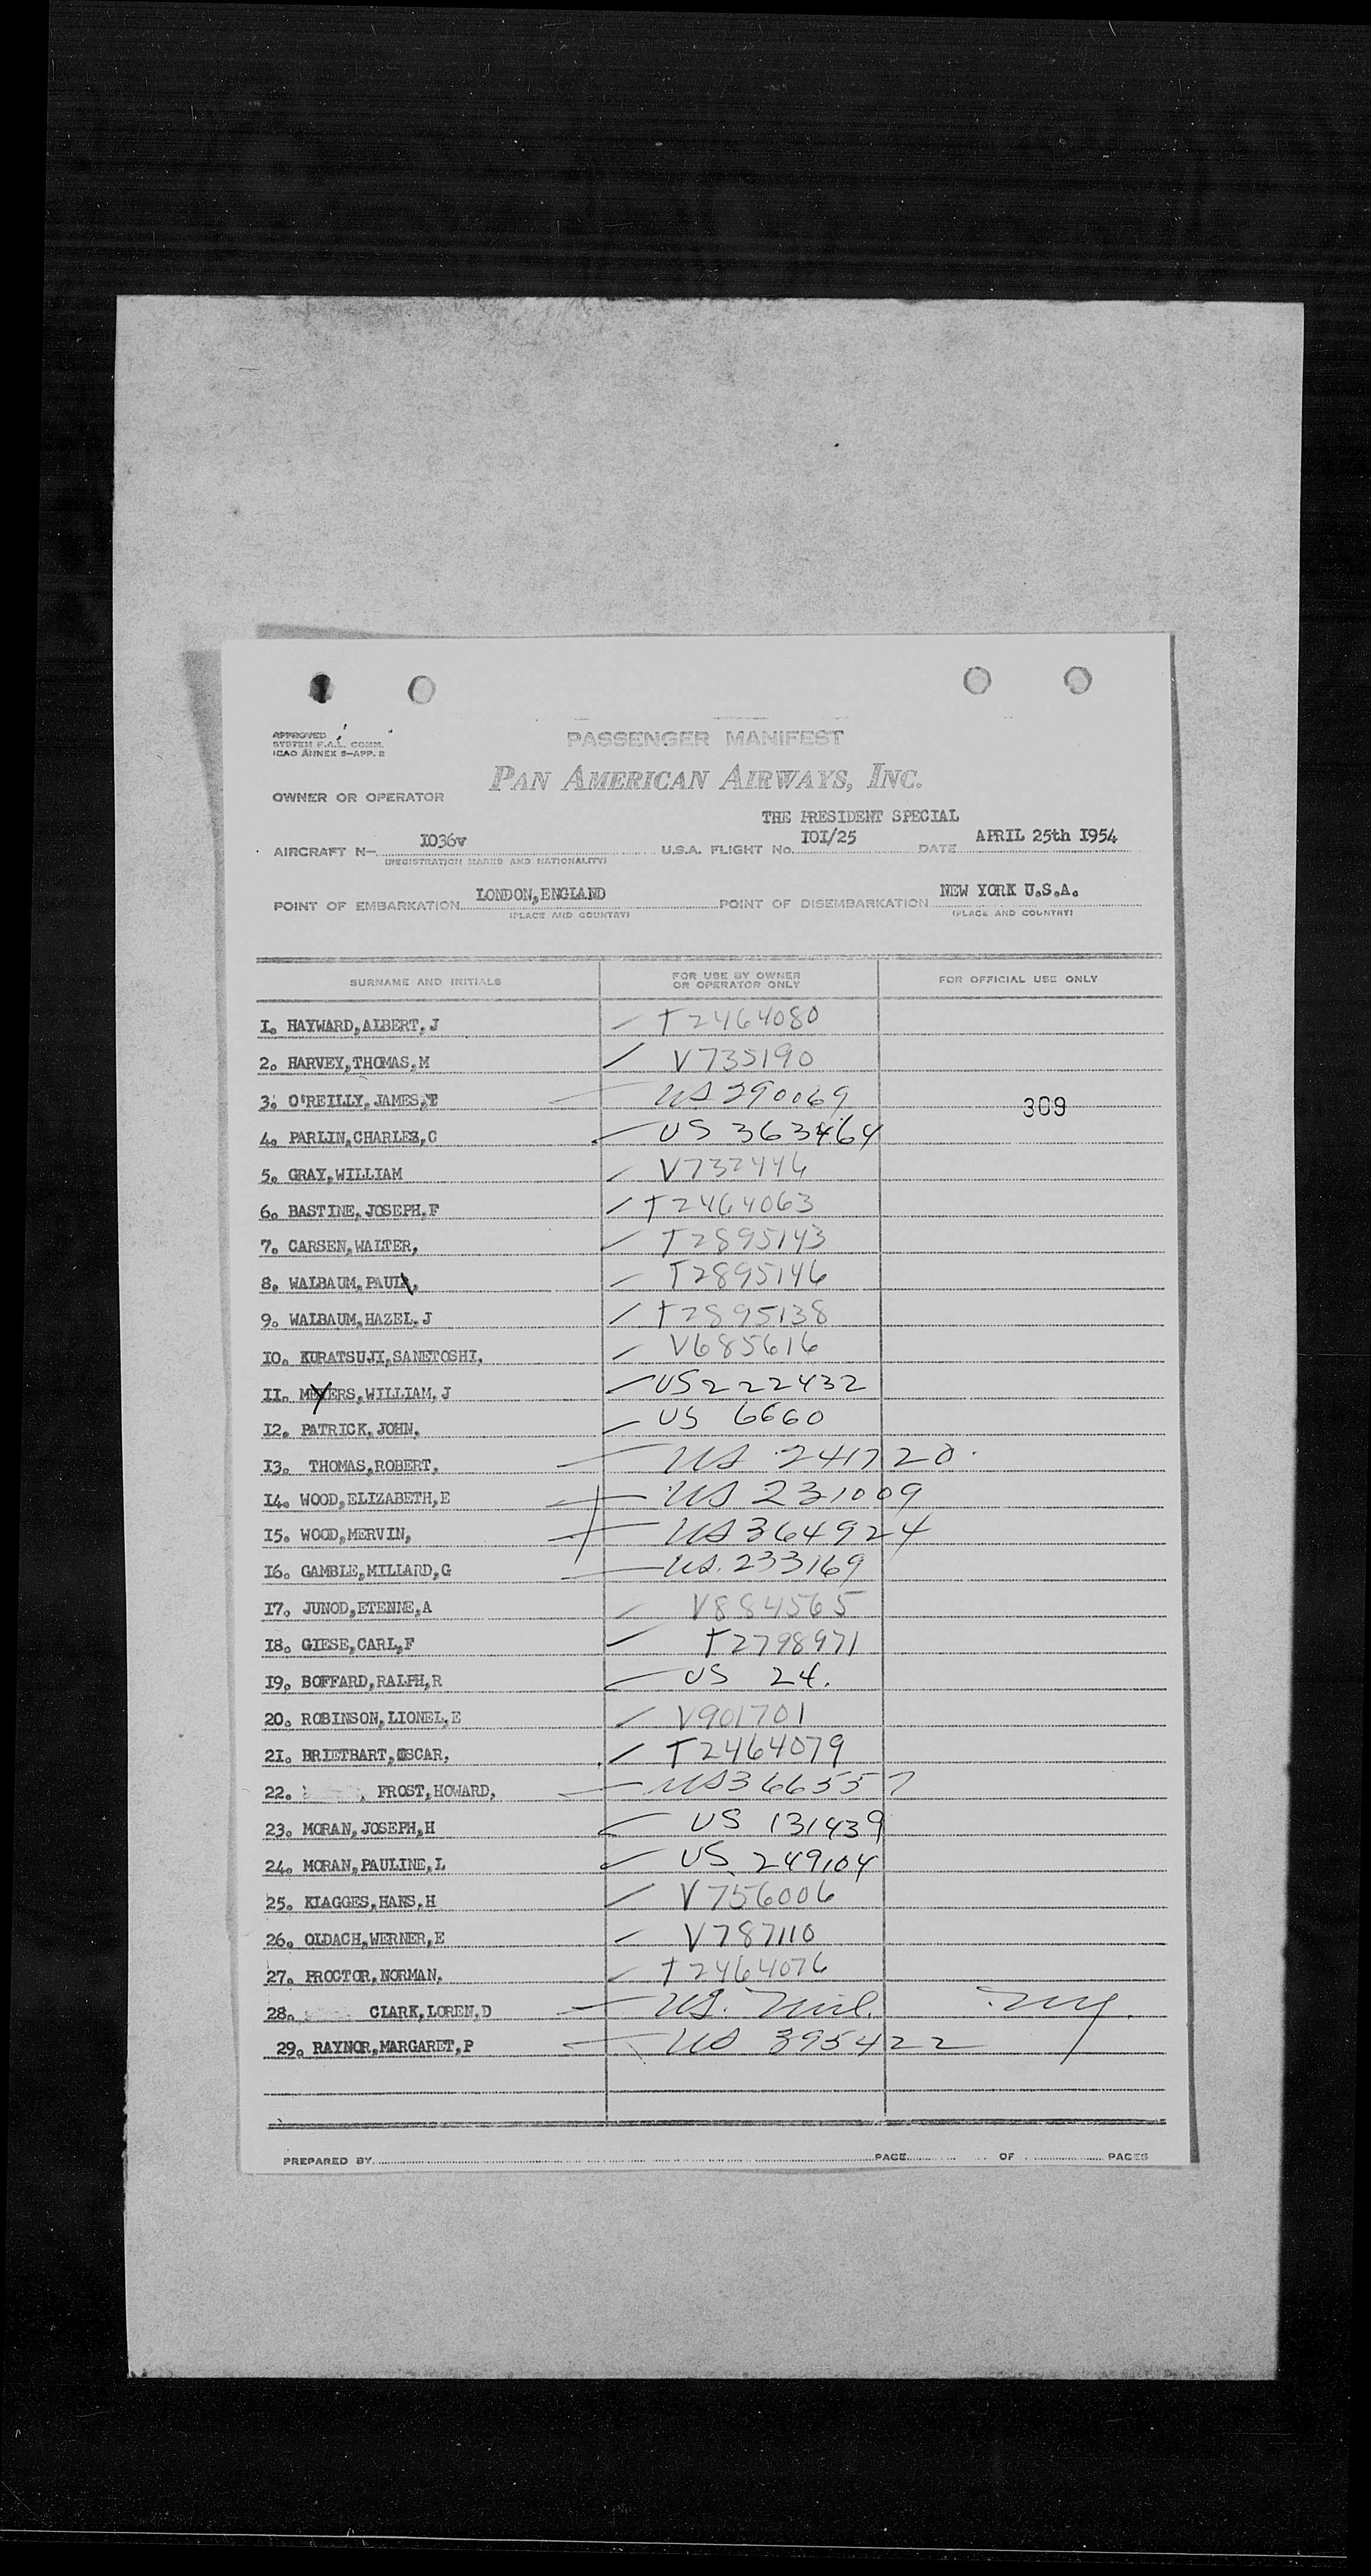 APPROVED
SYSTEM F.A.L. COMM.
ICAO ANNEX 9-APP. 2
PASSENGER MANIFEST
PAN AMERICAN AIRWAYS, INC.
OWNER OR OPERATOR
THE PRESIDENT SPECIAL
AIRCRAFT N- 1036v U.S.A. FLIGHT No. 101/25 DATE APRIL 25th 1954
(REGISTRATION MARKS AND NATIONALITY)
POINT OF EMBARKATION LONDON,ENGLAND POINT OF DISEMBARKATION NEW YORK U.S.A.
(PLACE AND COUNTRY) (PLACE AND COUNTRY)
SURNAME AND INITIALS FOR USE BY OWNER OR OPERATOR ONLY FOR OFFICIAL USE ONLY
1. HAYWARD,ALBERT,J T2464080
2. HARVEY,THOMAS,M V735190
3. O'REILLY,JAMES,T US 290069 309
4. PARLIN,CHARLES,C US 363464
5. GRAY,WILLIAM V732446
6. BASTINE,JOSEPH,F T2464063
7. CARSEN,WALTER, T2895143
8. WALBAUM,PAUL, T2895146
9. WALBAUM,HAZEL,J T2895138
10. KURATSUJI,SANETOSHI, V685616
11. MEYERS,WILLIAM,J US222432
12. PATRICK,JOHN, US 6660
13. THOMAS,ROBERT, US 241720
14. WOOD,ELIZABETH,E US 231009
15. WOOD,MERVIN, US364924
16. GAMBLE,MILLARD,G US.233169
17. JUNOD,ETENNE,A V884565
18. GIESE,CARL,F T2798971
19. BOFFARD,RALPH,R US 24.
20. ROBINSON,LIONEL,E V901701
21. BRIETBART,OSCAR, T2464079
22. FROST,HOWARD, US366557
23. MORAN,JOSEPH,H US 131439
24. MORAN,PAULINE,L US 249104
25. KLAGGES,HANS,H V756006
26. OLDACH,WERNER,E V787110
27. PROCTOR,NORMAN. T2464076
28. CLARK,LOREN,D US. Mil.
29. RAYNOR,MARGARET,P US 395422
PREPARED BY PAGE OF PAGES